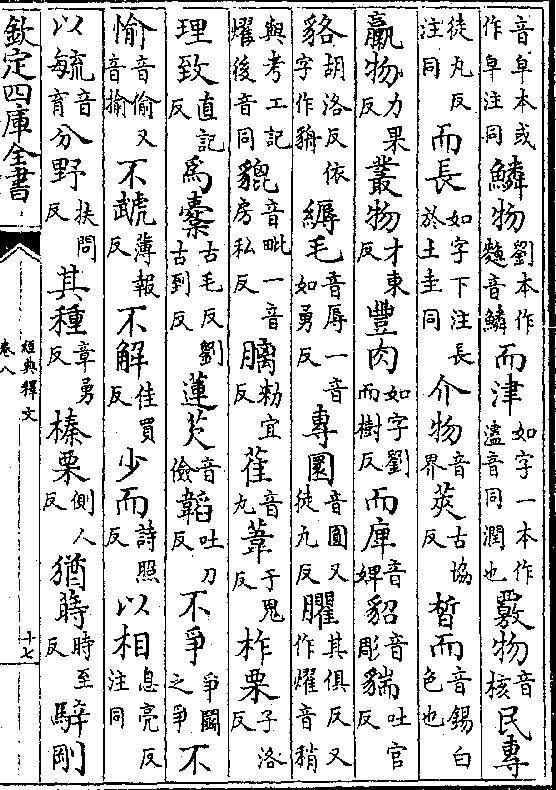 音阜本或作阜注同鱗物劉本作𪋯音鱗而津如字一本作濜音同潤也覈物音核民專
徒丸反注同而長如字下注長於土圭同介物音界莢古協反晳而音錫白色也
臝物力果反叢物才東反豐肉如字劉而樹反而庳音婢貂音彫貒吐官反
貉胡洛反依字作貈縟毛音辱一音如勇反專圜音圓又徒丸反臞其俱反又作㸌音稍
與考工記㸌後音同貔音毗一音房私反膬勑宜反萑音丸葦于鬼反柞栗子洛反
理致直記反爲櫜古毛反劉古到反蓮芡音儉韜吐刀反不爭爭鬭之爭不
愉音偷又音揄不虣薄報反不解佳買反少而詩照反以相息亮反注同
以毓音育分野扶問反其種章勇反榛栗側人反猶蒔時至反騂剛
欽定四庫全書
經典釋文
卷八
十七